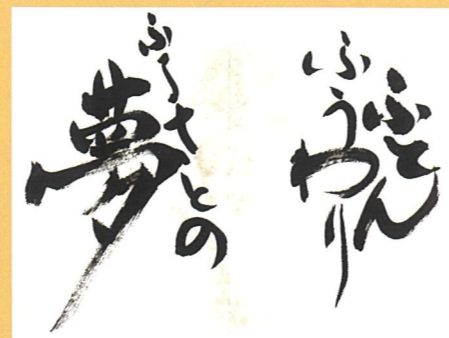 ふとん
ふうわり
ふるさとの
夢